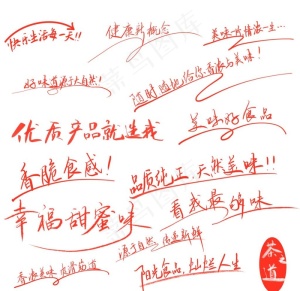 快乐生活每一天!!
健康新概念
美味心情放一生...
好味道源于大自然!
随时随地给你香脆与美味!
优质产品就选我
美味好食品
香脆食感!
品质纯正,天然美味!!
幸福甜蜜味
看我最够味
源于自然 传递新鲜
香浓美味
阳光食品,灿烂人生
茶之道